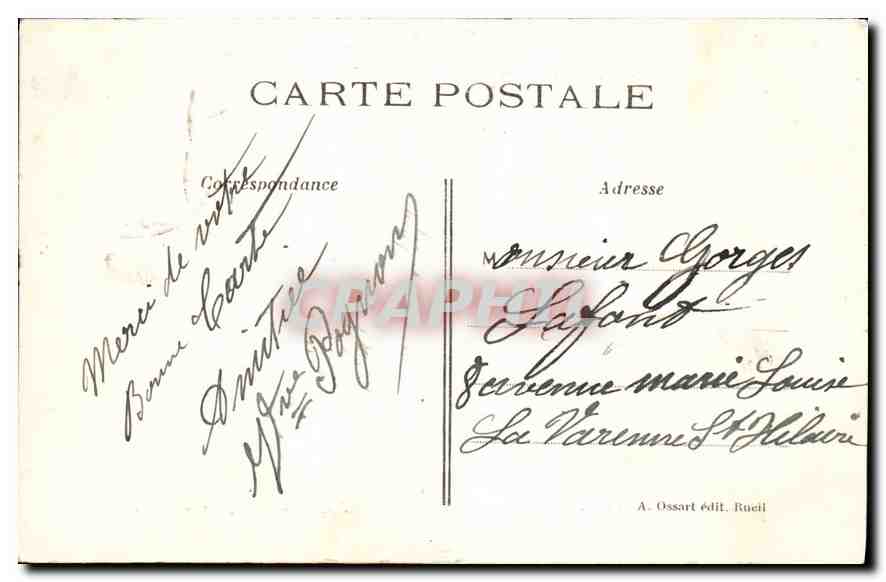 CARTE POSTALE
Correspondance
Merci de votre
Bonne Carte
Amitiee
Vve Pognon
Adresse
Monsieur Gorges
Lafont
8 avenue marie Louise
La Varenne St Hilaire
A. Ossart édit. Rueil
CPAPHIL